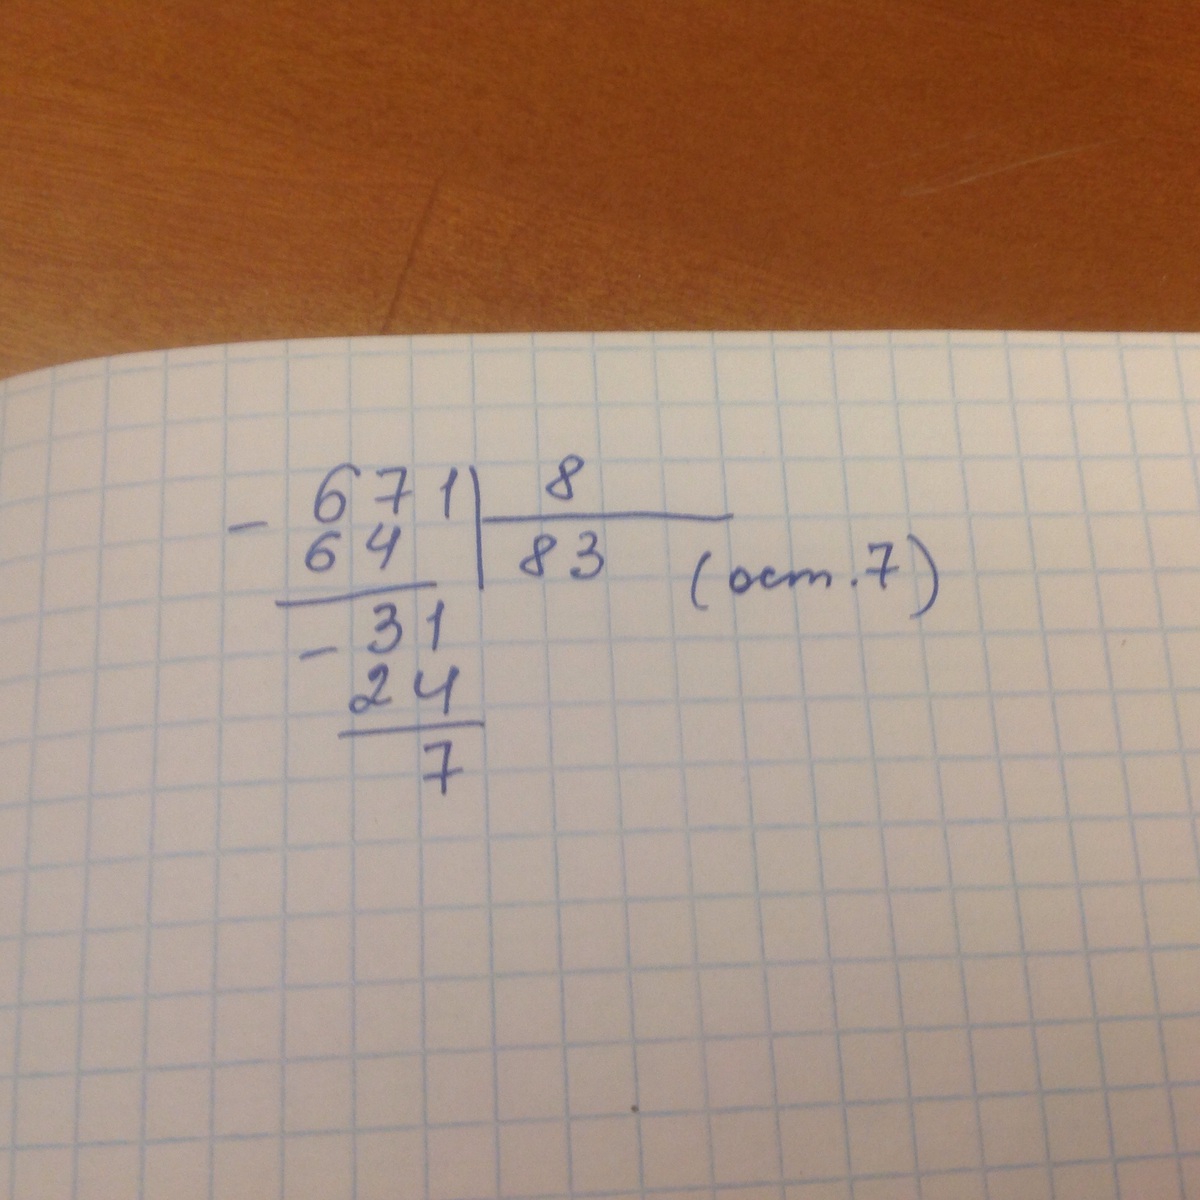 - 671 | 8
64 | 83 (ост. 7)
- 31
24
7